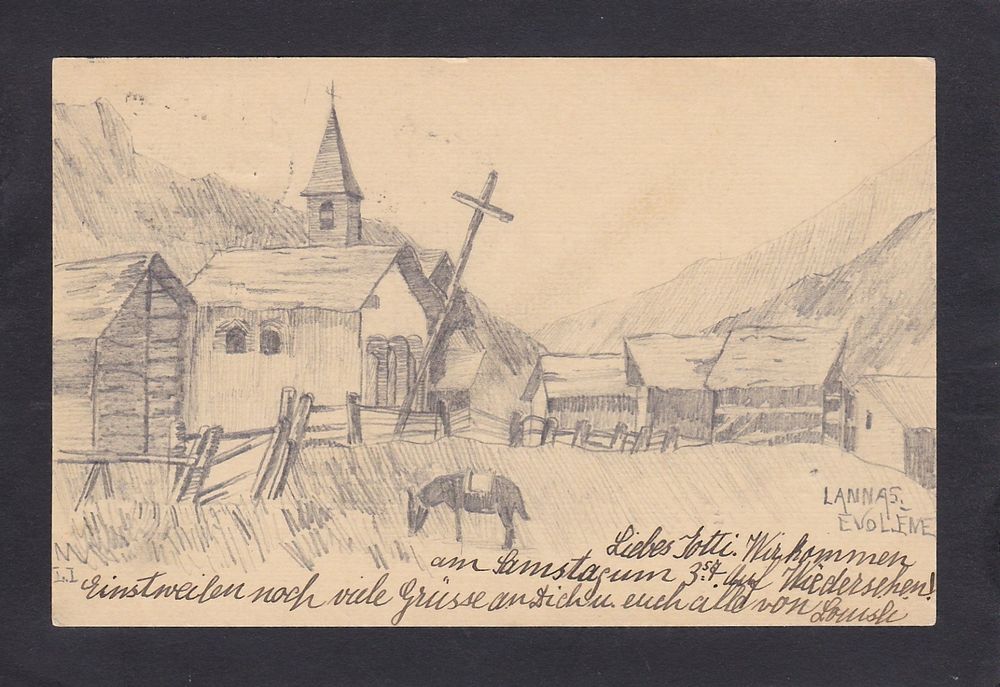 LANNAS.
EVOLÈNE
I.I
Liebes Totti. Wir kommen
am Samstag um 3 57. Auf Wiedersehen!
Einstweilen noch viele Grüsse an Dich u. euch alle von